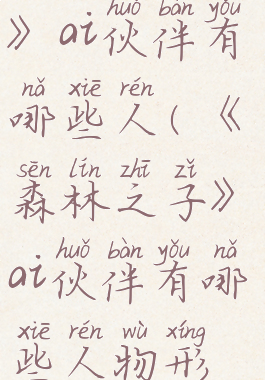 huǒ bàn yǒu
》ai伙伴有
nǎ xiē rén
哪些人(《
sēn lín zhī zǐ
森林之子》
huǒ bàn yǒu nǎ
ai伙伴有哪
xiē rén wù xíng
些人物形